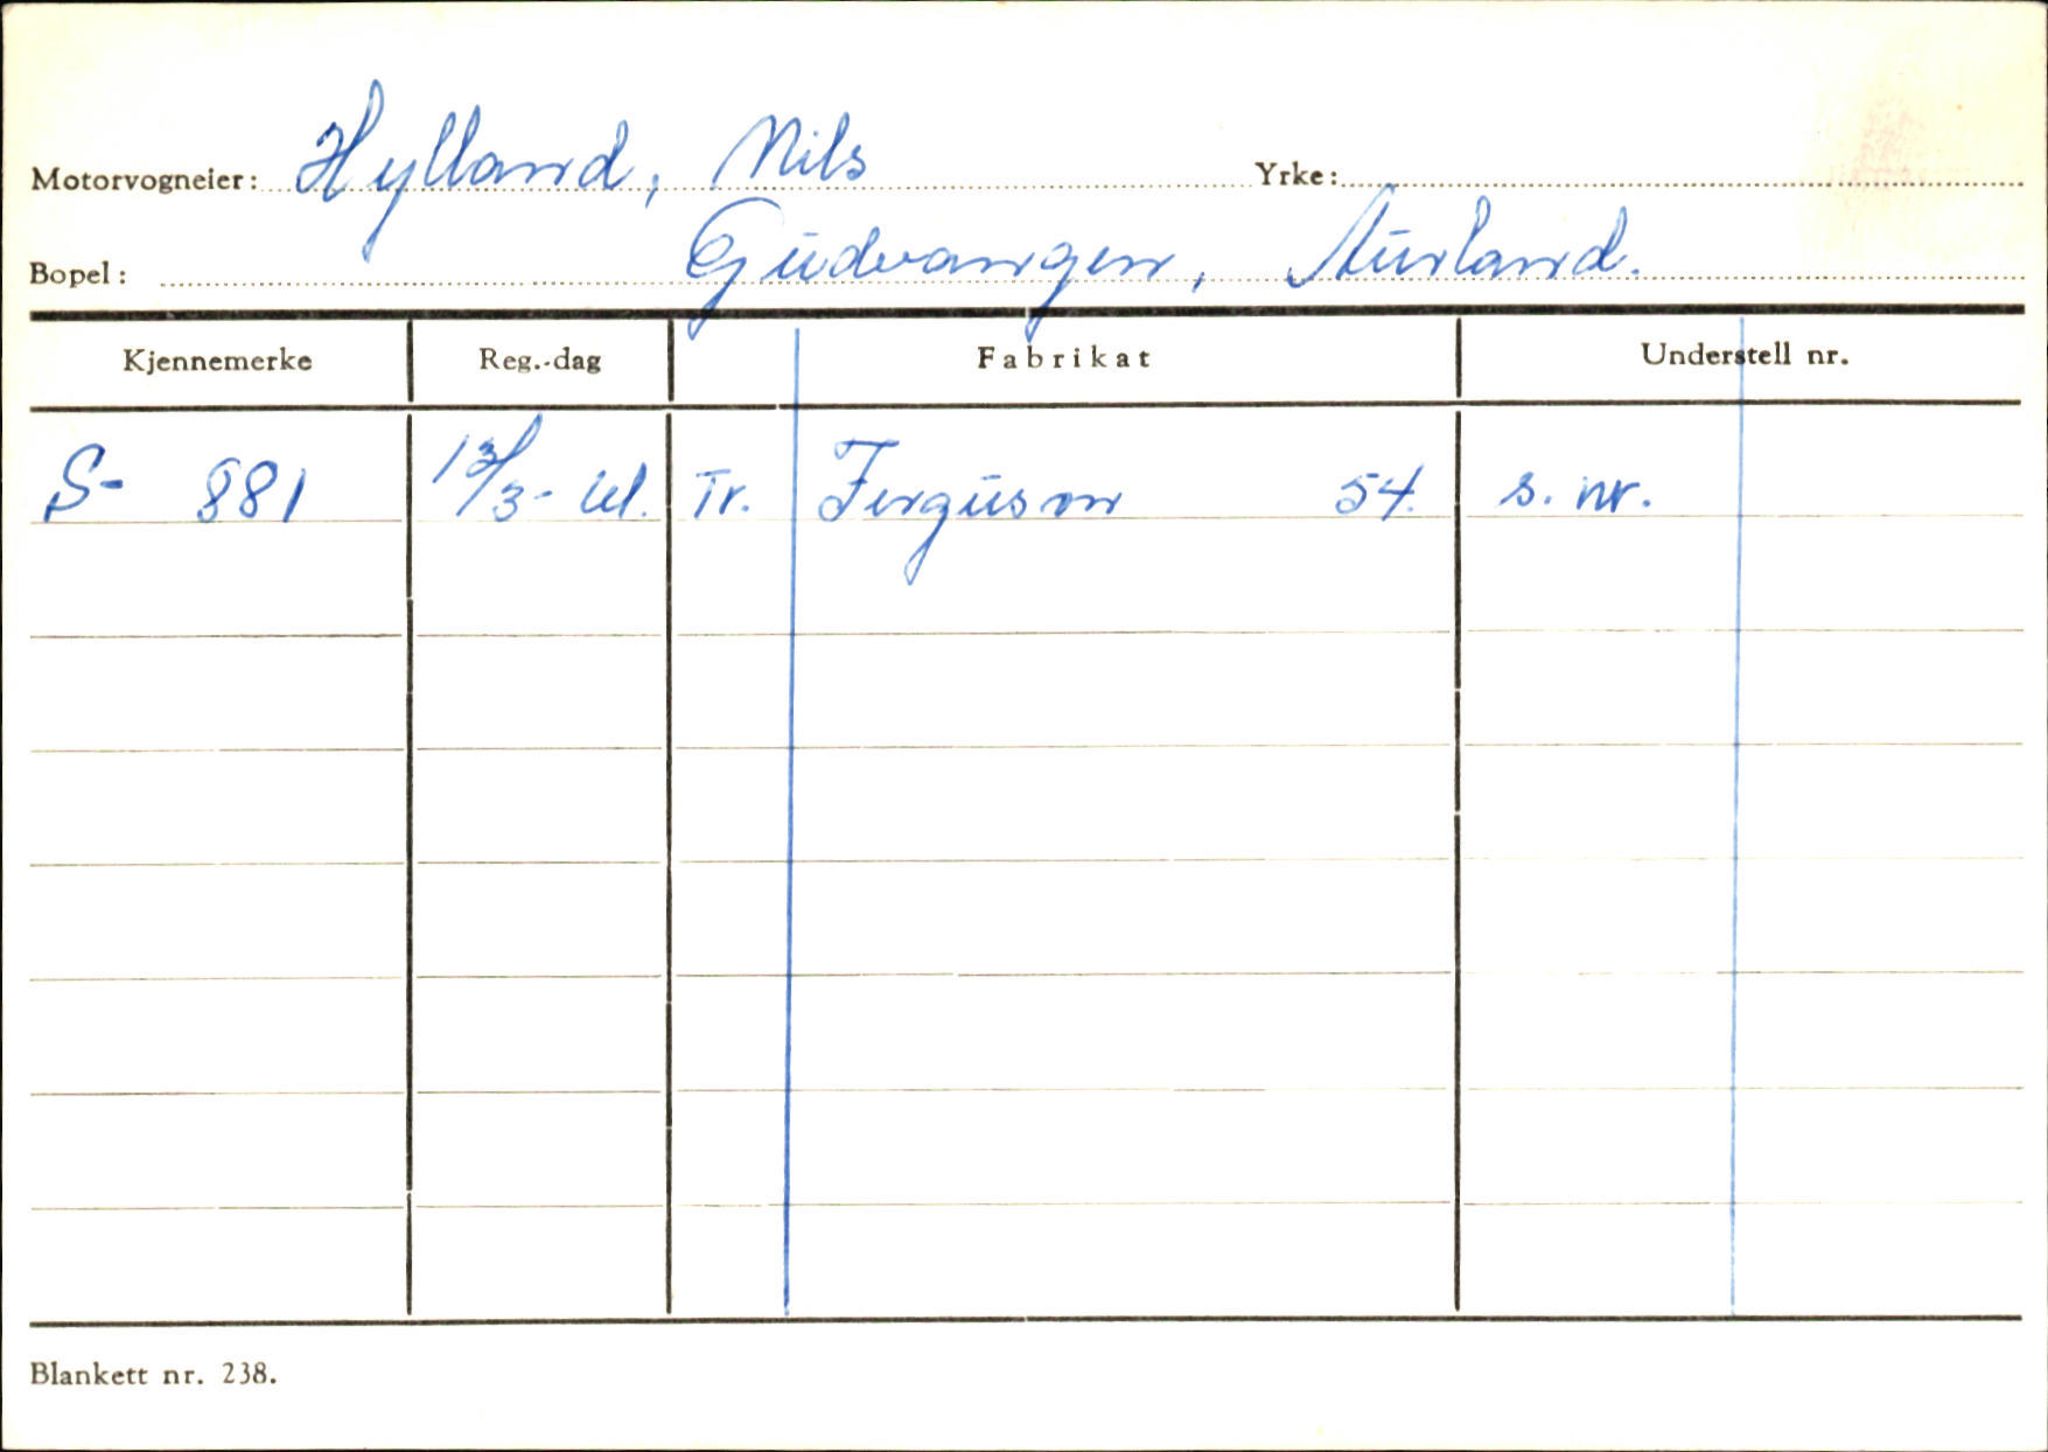 Motorvogneier: Hylland, Nils Yrke:
Bopel: Gudvangen, Aurland.
Kjennemerke Reg.-dag Fabrikat Understell nr.
S- 881 13/3-61. Tr. Ferguson 54. s. nr.
Blankett nr. 238.